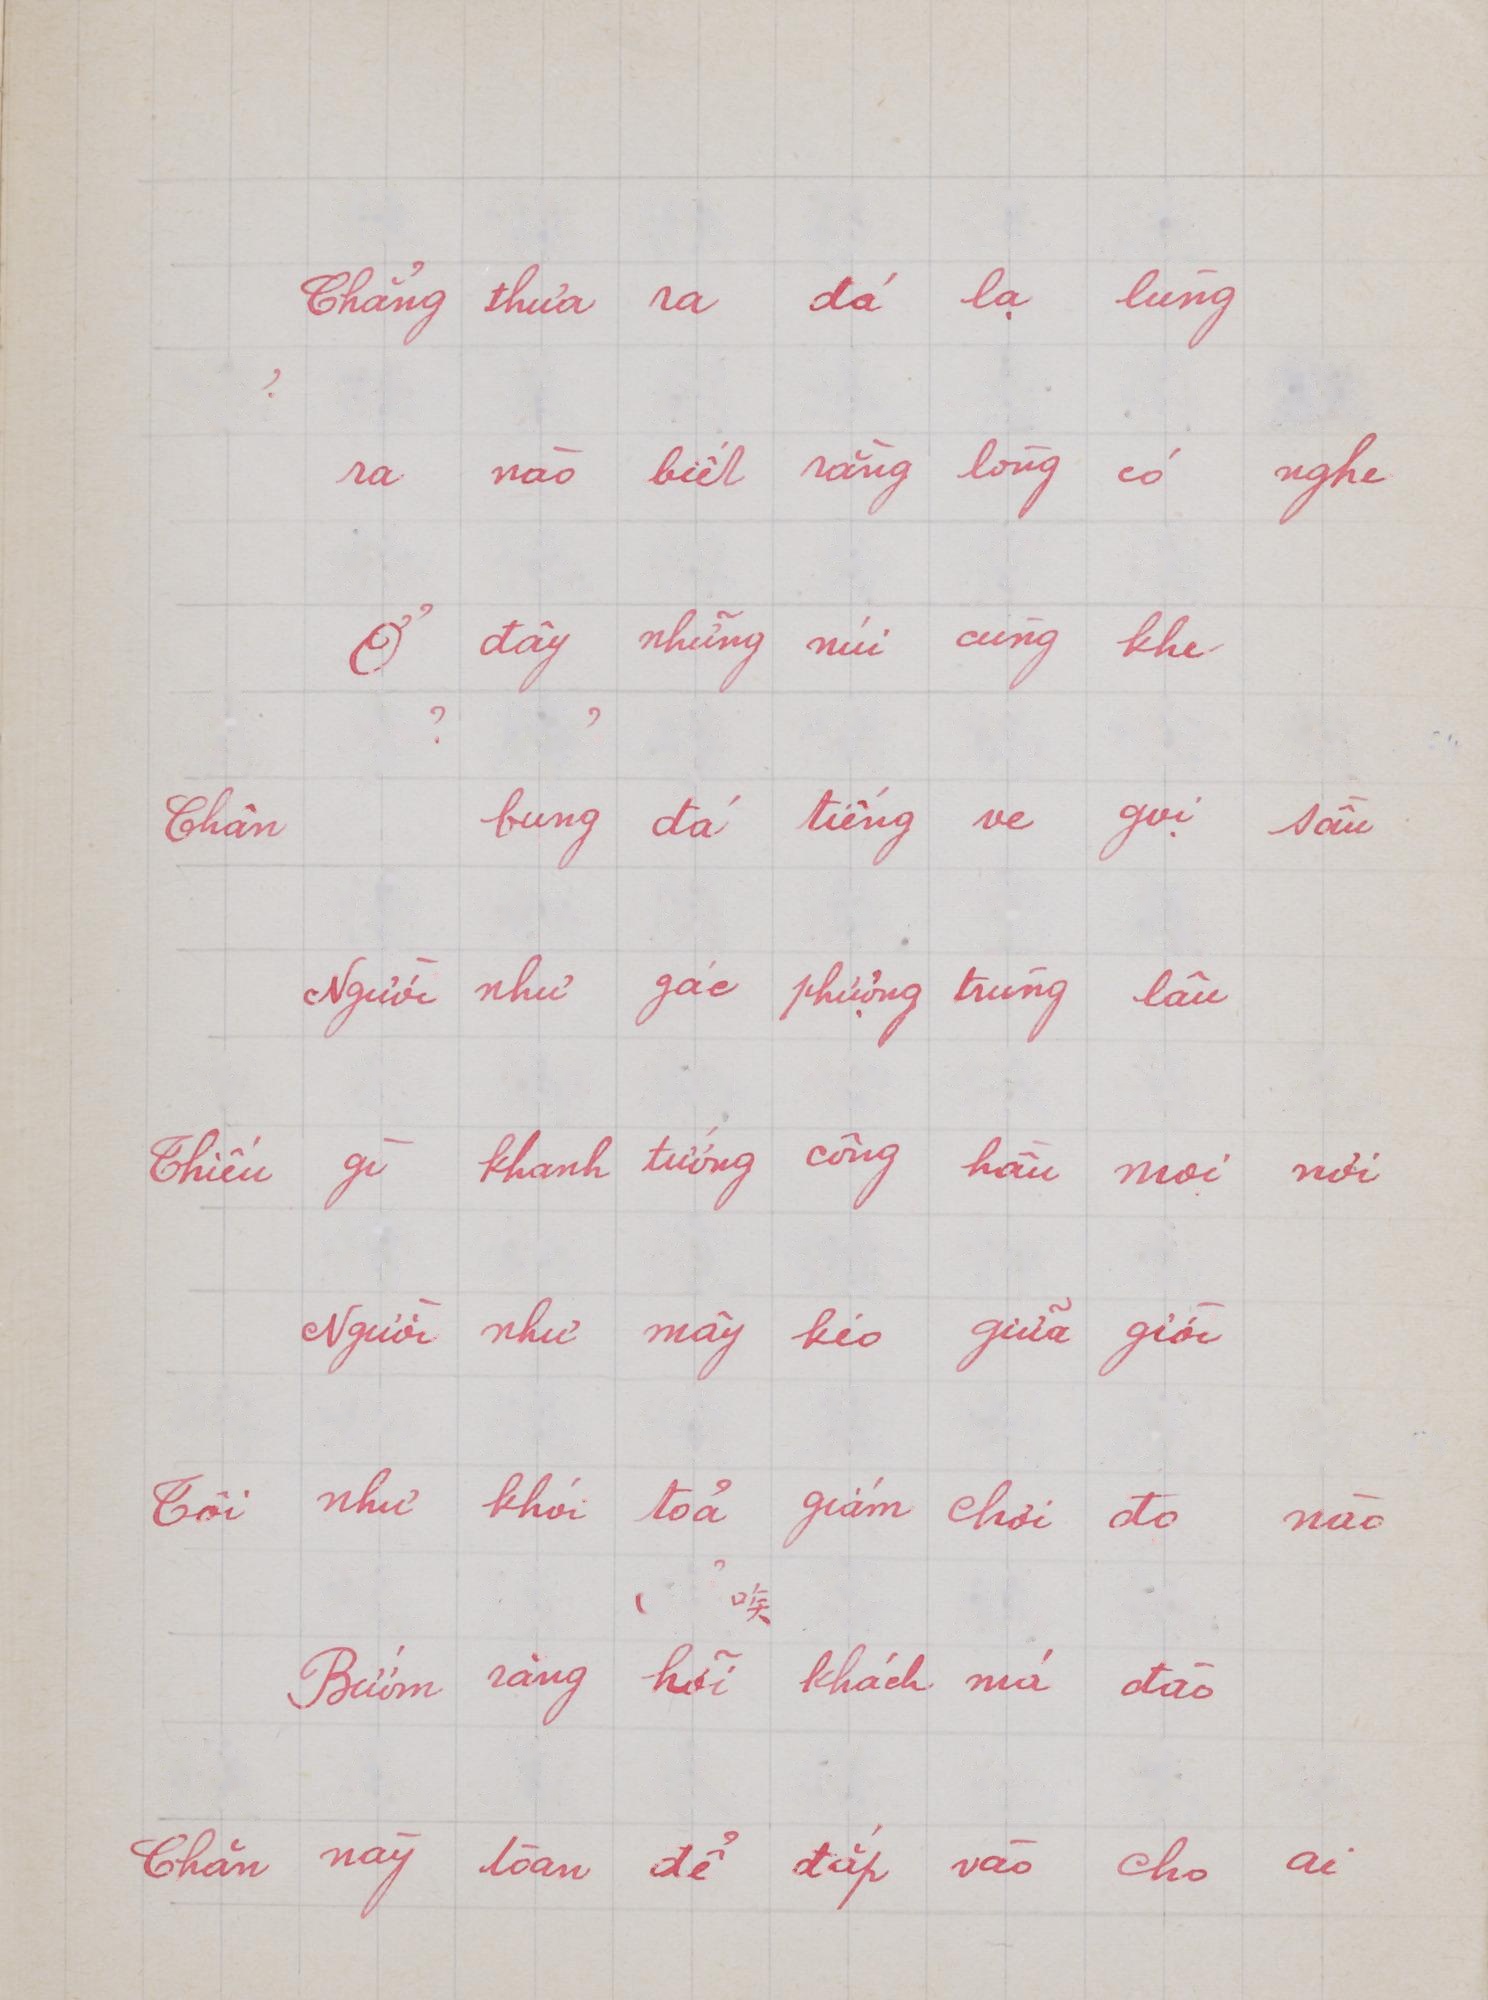 Chẳng thưa ra đá lạ lùng
?
ra nào biết rằng lòng có nghe
Ở đây những núi cùng khe
? ?
Chân bung đá tiếng ve gọi sầu
Người như gác phượng trùng lâu
Thiếu gì khanh tướng công hầu mọi nơi
Người như mây kéo giữa giời
Tôi như khói toả giám chơi đo nào
( ? 唉
Bướm ràng hỡi khách má đào
Chăn này tòan để đắp vào cho ai